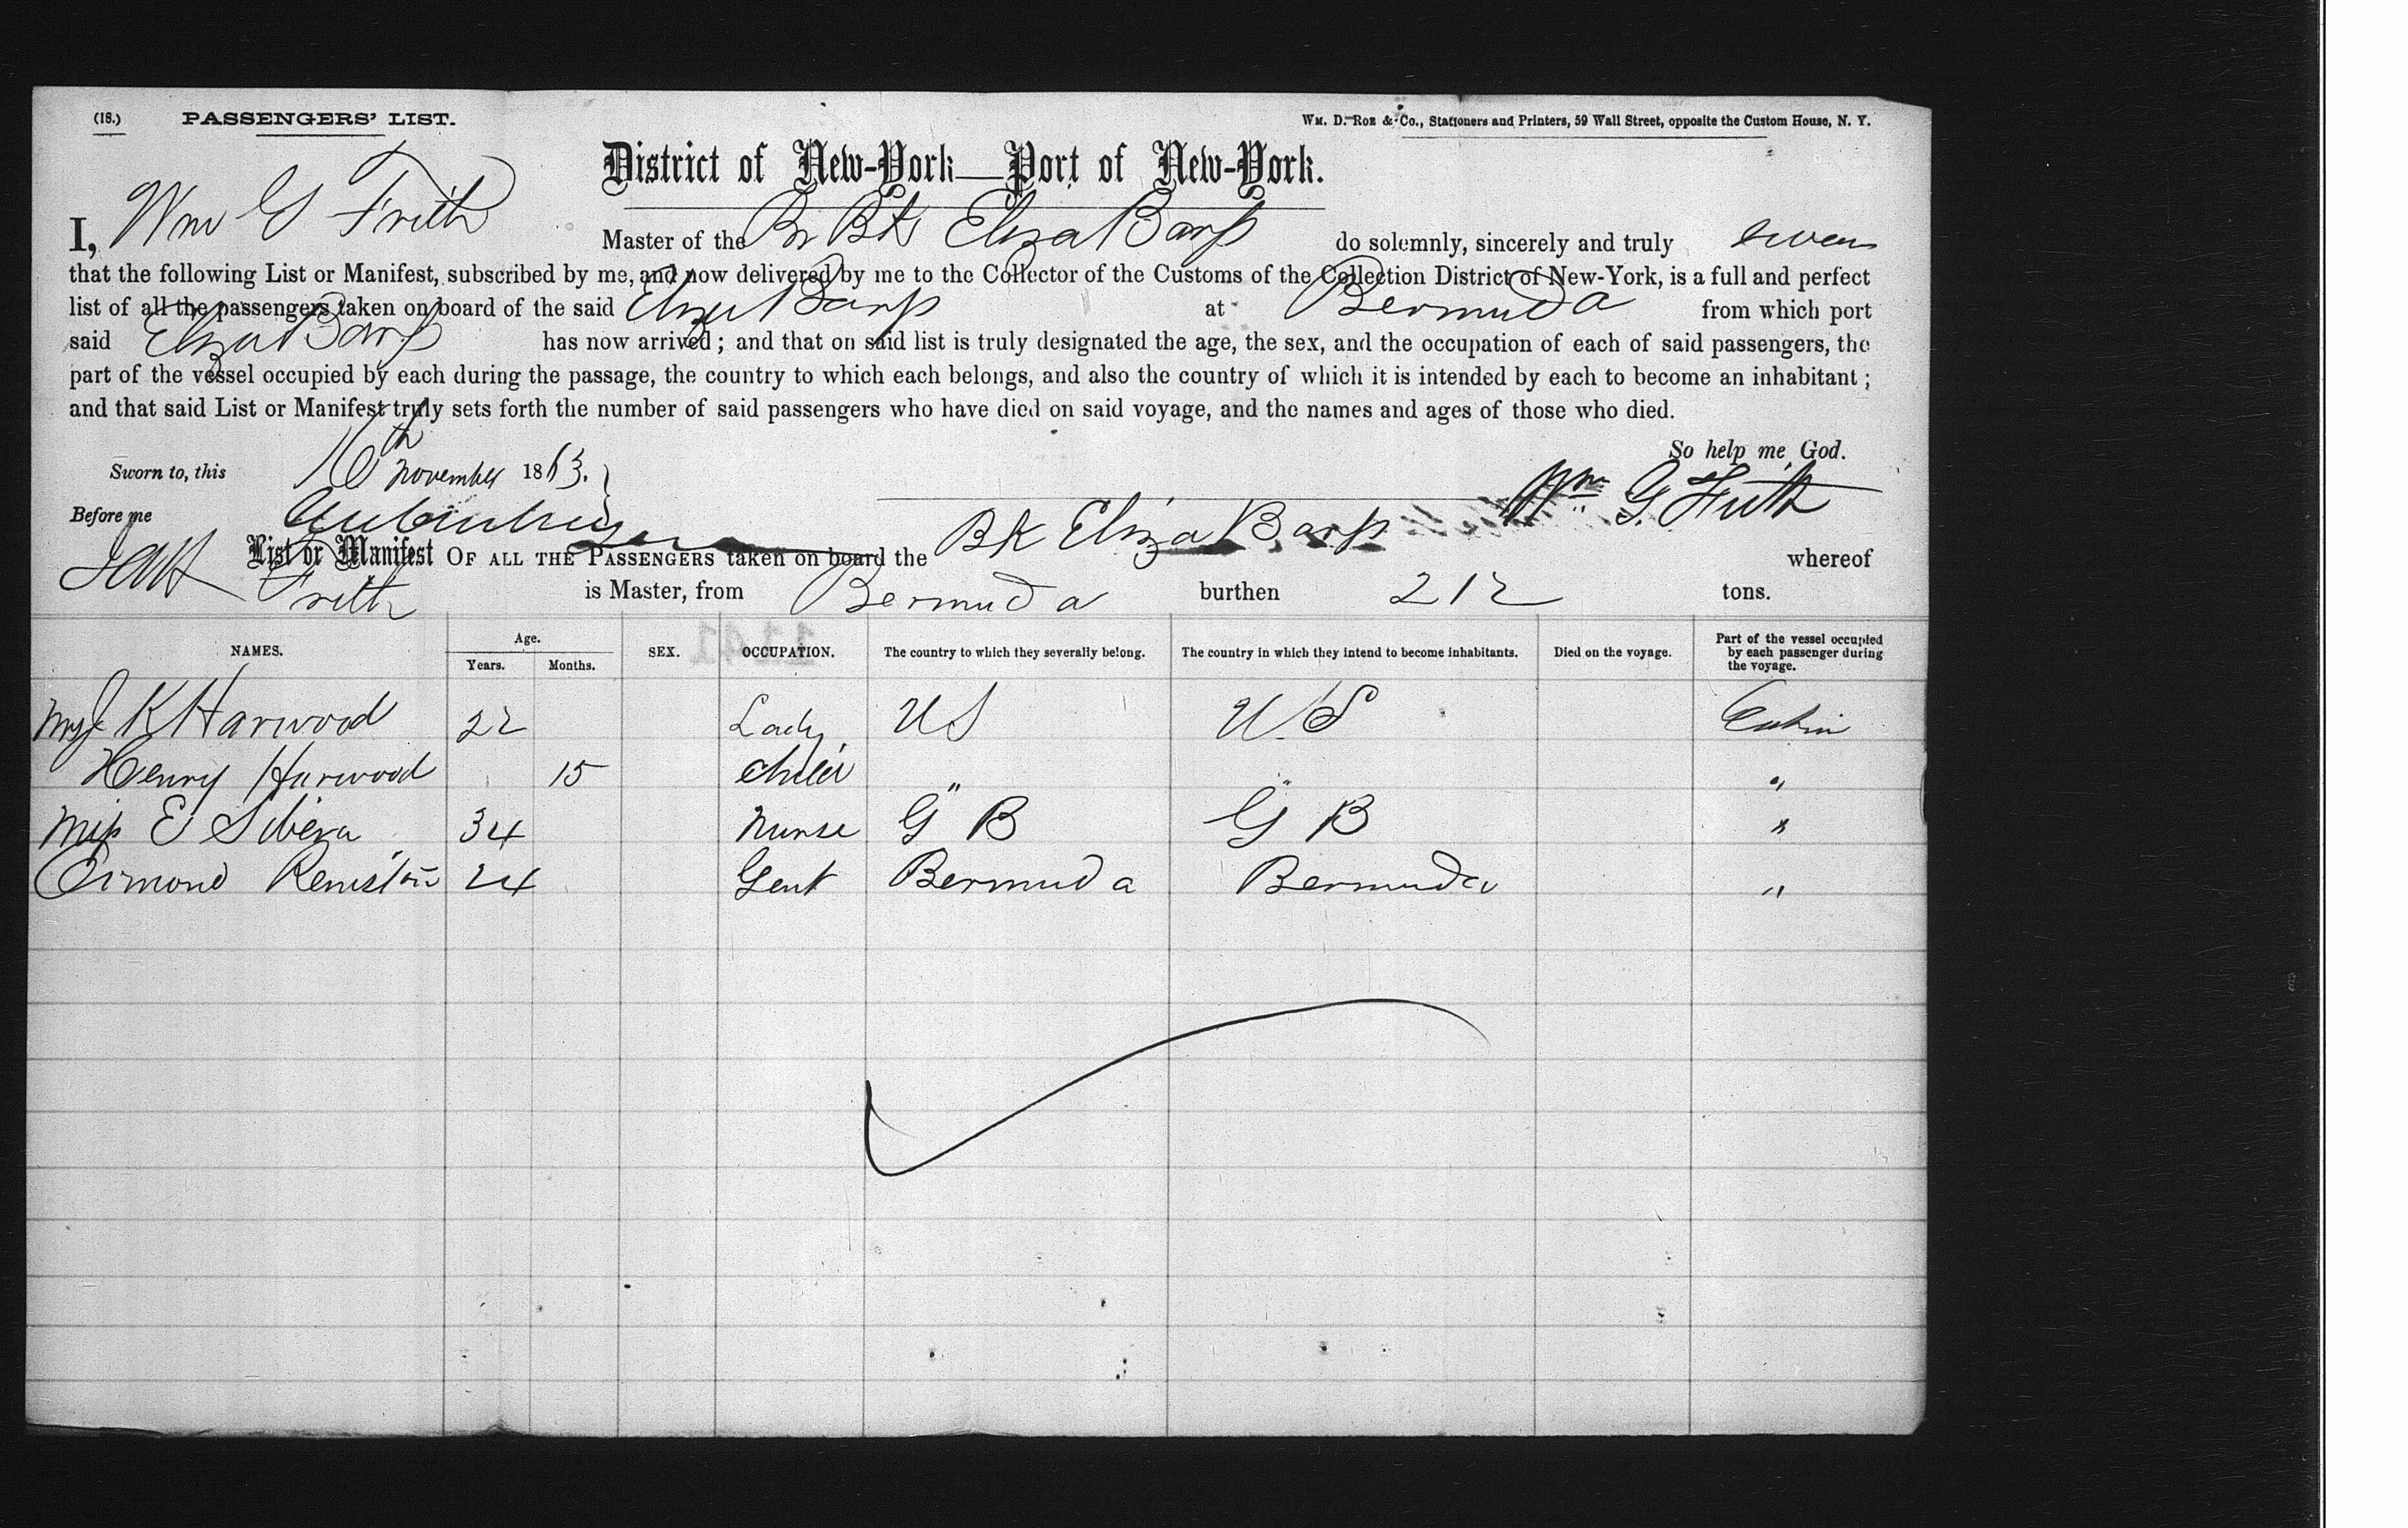 (18.) PASSENGERS' LIST. Wm. D. Roe & Co., Stationers and Printers, 59 Wall Street, opposite the Custom House, N. Y.
District of New-York—Port of New-York.
I, Wm G Frith Master of the Br Bk Eliza Barss do solemnly, sincerely and truly swear
that the following List or Manifest, subscribed by me, and now delivered by me to the Collector of the Customs of the Collection District of New-York, is a full and perfect
list of all the passengers taken on board of the said Eliza Barss at Bermuda from which port
said Eliza Barss has now arrived; and that on said list is truly designated the age, the sex, and the occupation of each of said passengers, the
part of the vessel occupied by each during the passage, the country to which each belongs, and also the country of which it is intended by each to become an inhabitant;
and that said List or Manifest truly sets forth the number of said passengers who have died on said voyage, and the names and ages of those who died.
So help me God.
Sworn to, this 16th November 1863.
Wm. G. Frith
Before me
List or Manifest OF ALL THE PASSENGERS taken on board the Bk Eliza Barss whereof
Frith is Master, from Bermuda burthen 212 tons.
NAMES. Age. Years. Months. SEX. OCCUPATION. The country to which they severally belong. The country in which they intend to become inhabitants. Died on the voyage. Part of the vessel occupied by each passenger during the voyage.
Mrs J K Harwood 22 Lady U S U. S Cabin
Henry Harwood 15 Child " " "
Miss E 34 Nurse G B G B "
Ormond 24 Gent Bermuda Bermuda "